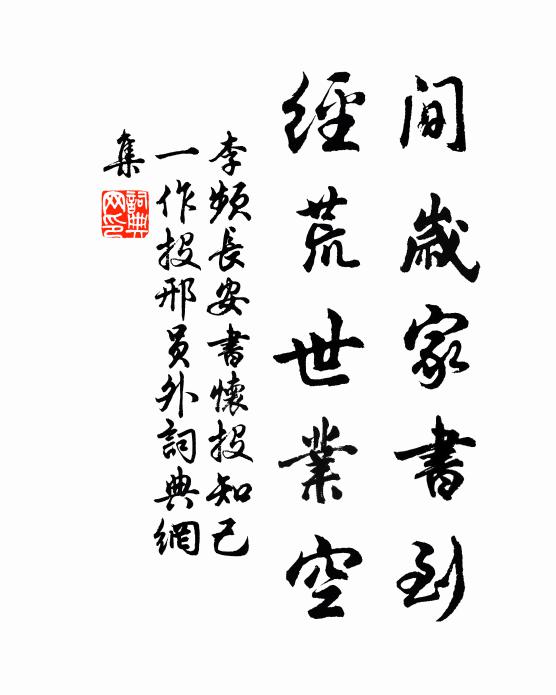 間歲家書到
經荒世業空
李頻長安書懷投知己
一作投邢員外詞典網
集
詞典網